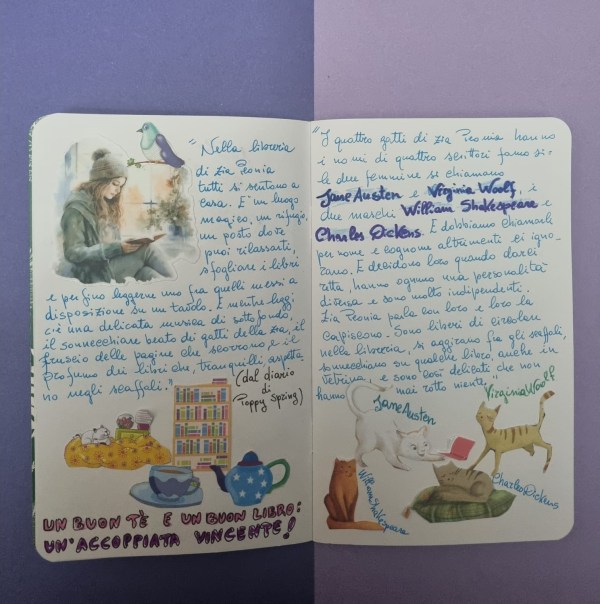 "Nella libreria
di zia Peonia
tutti si sentono a
casa. E' un luogo
magico, un rifugio,
un posto dove
puoi rilassarti,
sfogliare i libri
e perfino leggerne uno fra quelli messi a
disposizione su un tavolo. E mentre leggi
c'è una delicata musica di sottofondo,
il sonnecchiare beato dei gatti della zia, il
fruscio delle pagine che scorrono e il
profumo dei libri che, tranquilli, aspetta
no negli scaffali."
(dal diario
di
Poppy Spring)
UN BUON TÈ E UN BUON LIBRO:
UN'ACCOPPIATA VINCENTE!
"I quattro gatti di zia Peonia hanno
i nomi di quattro scrittori famosi:
le due femmine si chiamano
Jane Austen e Virginia Woolf, i
due maschi William Shakespeare e
Charles Dickens. E dobbiamo chiamarli
per nome e cognome altrimenti ci igno-
rano. E decidono loro quando darci
retta, hanno ognuno una personalità
diversa e sono molto indipendenti.
Zia Peonia parla con loro e loro la
capiscono. Sono liberi di circolare
nella libreria, si aggirano fra gli scaffali,
sonnecchiano su qualche libro, anche in
vetrina, e sono così delicati che non
hanno mai rotto niente."
Jane Austen
Virginia Woolf
William Shakespeare
Charles Dickens